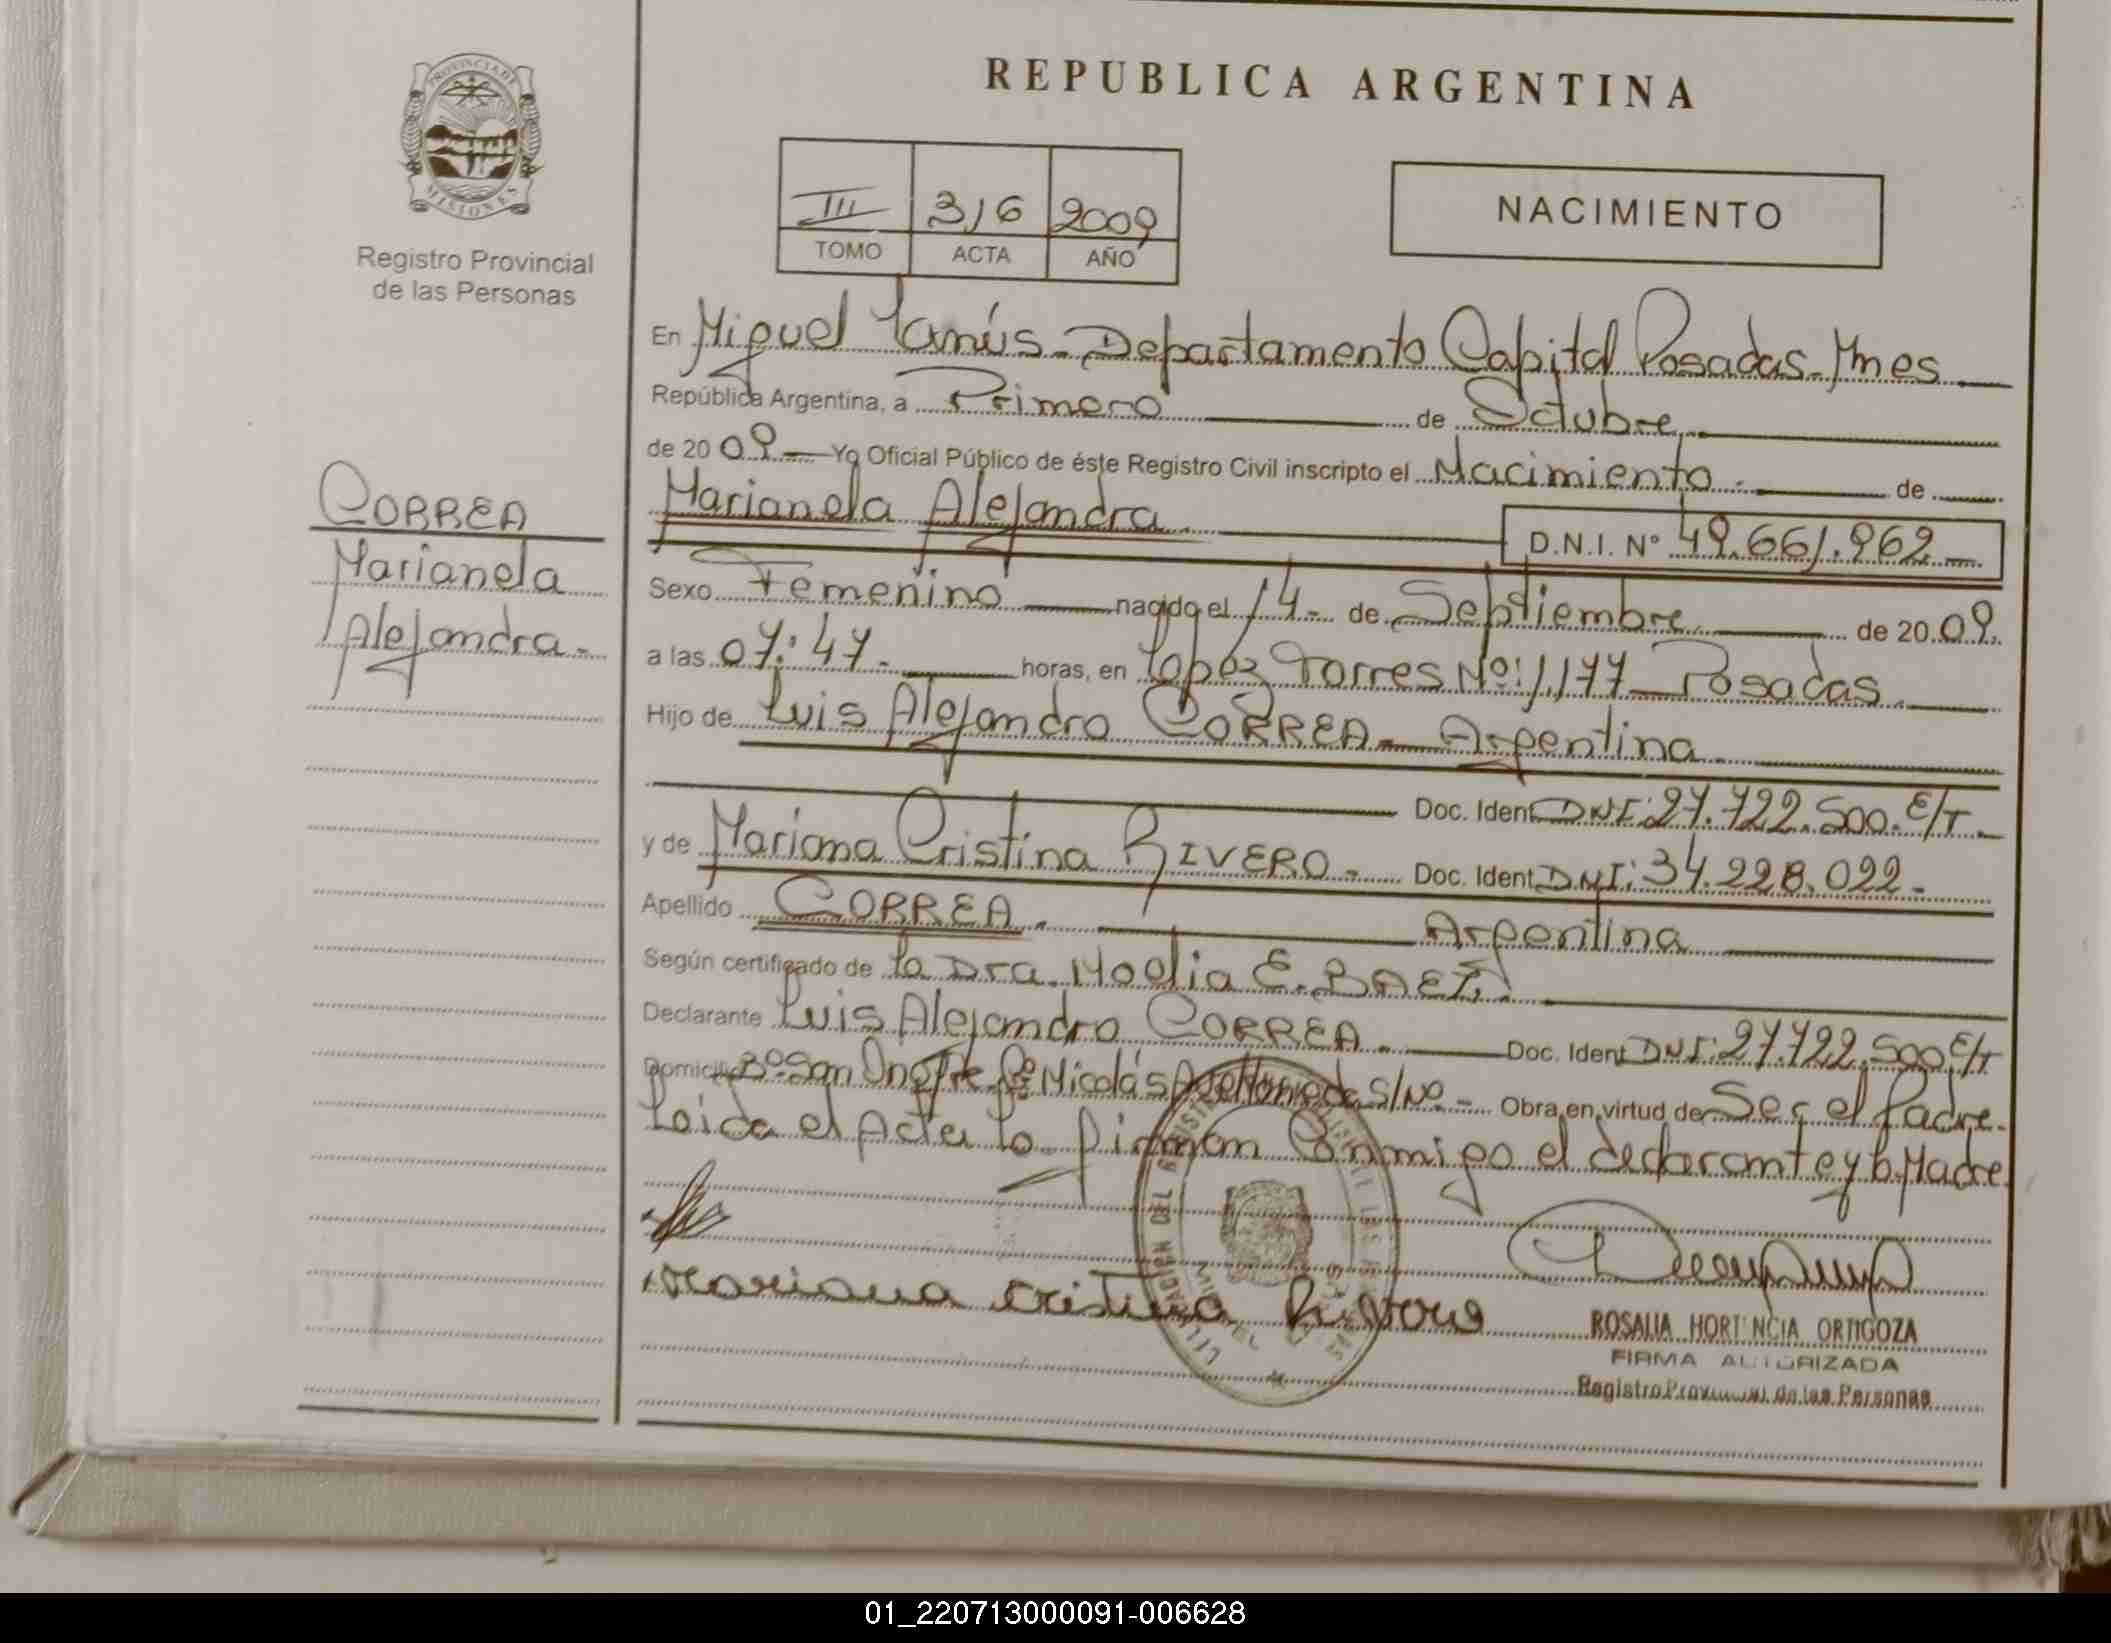 PROVINCIA DE
MISIONES
Registro Provincial
de las Personas
REPUBLICA ARGENTINA
III 316 2009
TOMO ACTA AÑO
NACIMIENTO
En Miguel Lanús - Departamento Capital Posadas - Mnes
República Argentina, a Primero de Octubre
de 20 09 Yo Oficial Público de éste Registro Civil inscripto el Nacimiento de
Marianela Alejandra D.N.I. Nº 49.661.962
CORREA
Marianela
Alejandra
Sexo Femenino nacido el 14 de Septiembre de 20 09
a las 07:47 horas, en Lopez Torres Nº: 1.177 Posadas
Hijo de Luis Alejandro CORREA - Argentina
Doc. Ident DNI: 27.722.500. E/T
y de Mariana Cristina RIVERO - Doc. Ident. DNI: 34.228.022
Apellido CORREA. Argentina
Según certificado de la Dra. Noelia E. BAEZ
Declarante Luis Alejandro CORREA - Doc. Ident DNI: 27.722.500 E/T
Domicilio Bº San Onofre Nicolás Avellaneda S/Nº - Obra en virtud de Ser el Padre.
Leida el Acta la firman Conmigo el declarante y la Madre
Mariana Cristina Rivero
ROSALIA HORTENCIA ORTIGOZA
FIRMA AUTORIZADA
Registro Provincial de las Personas
01_220713000091-006628